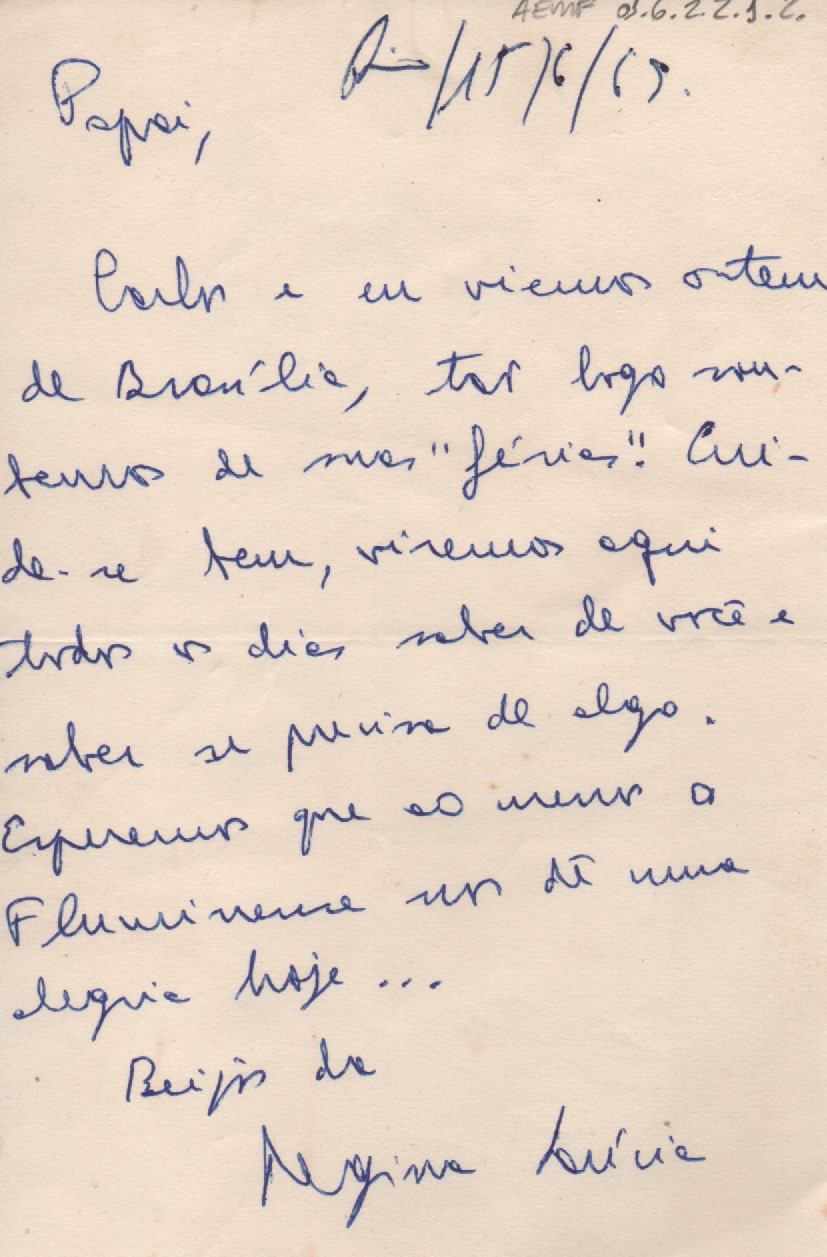 AEMF 03.6.2.2.9.2.
Rio/15/6/69.
Papai,
Carlos e eu viemos ontem
de Brasília, tão logo sou-
bemos de suas "férias". Cui-
de-se bem, viremos aqui
todos os dias saber de você e
saber se precisa de algo.
Esperemos que ao menos o
Fluminense nos dê uma
alegria hoje...
Beijos da
Regina Lúcia